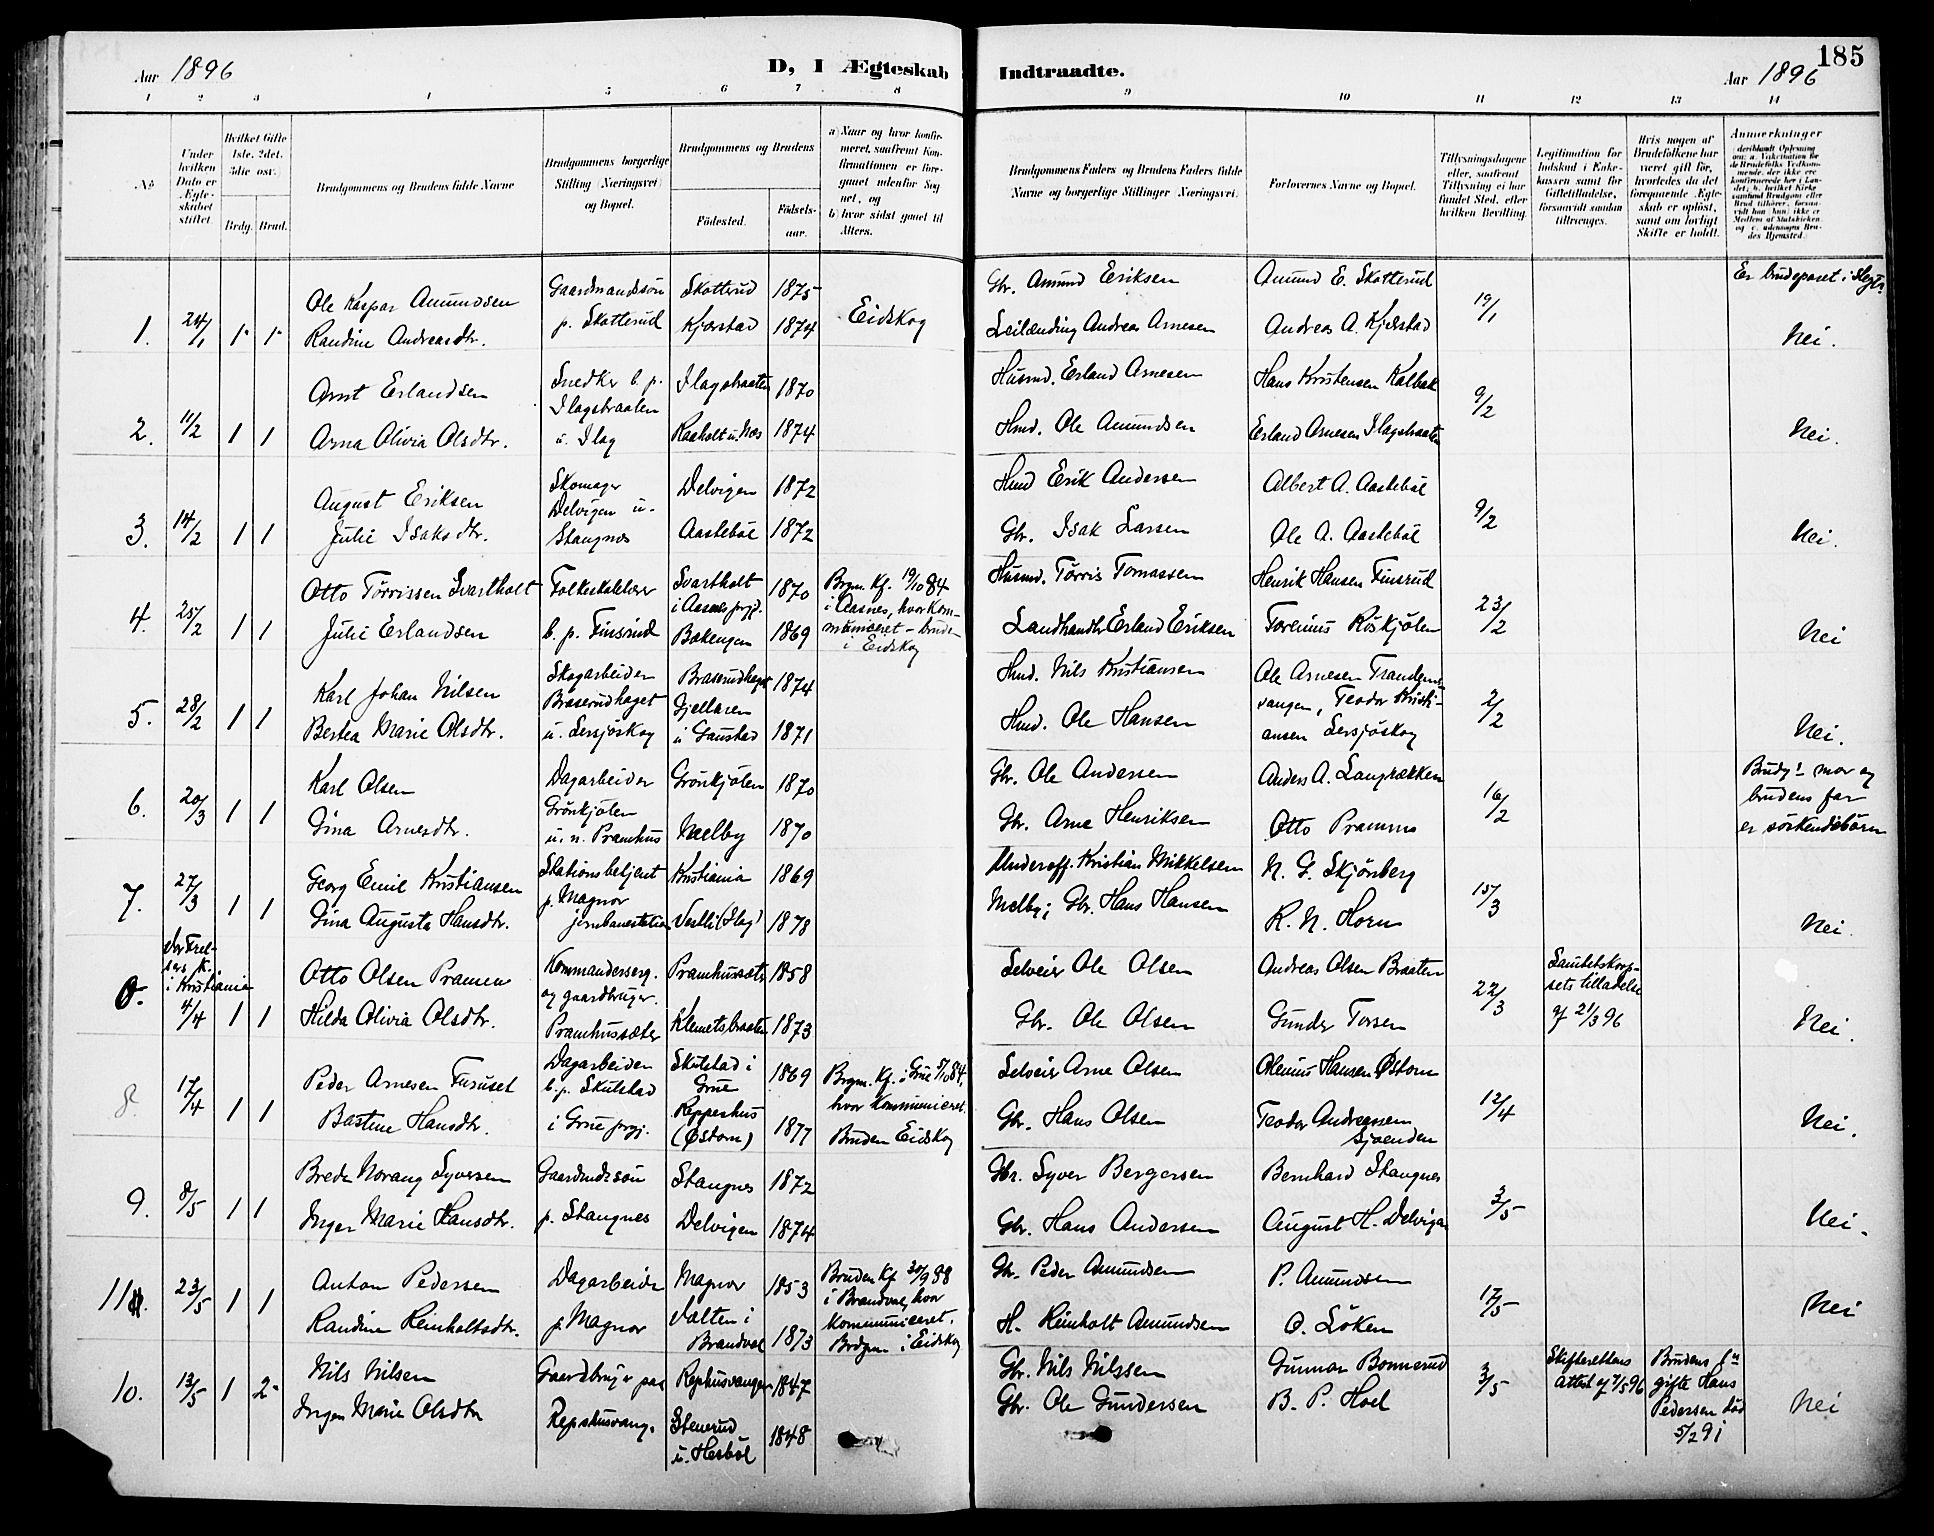 185
Aar 1896
D, I Ægteskab
Indtraadte.
Aar 1896
1 2 3 4 5 6 7 8 9 10 11 12 13 14
No
Under hvilken Dato er Ægteskabet stiftet.
Hvilket Gifte 1ste, 2det, 3die osv.)
Brdg. Brud.
Brudgommens og Brudens fulde Navne
Brudgommens borgerlige Stilling (Næringsvei) og Bopæl.
Brudgommens og Brudens
Födested.
Födsels-aar.
a) Naar og hvor konfirmeret, saafremt Konfirmationen er foregaaet udenfor Sognet, og
b) hvor sidst gaaet til Alters.
Brudgommens Faders og Brudens Faders fulde Navne og borgerlige Stillinger (Næringsvei).
Forlovernes Navne og Bopæl.
Tillysningsdagene eller, saafremt Tillysning ei har fundet Sted, efter hvilken Bevilling.
Legitimation for Indskud i Enkekassen samt for Giftetilladelse, forsaavidt saadan tiltrænges.
Hvis nogen af Brudefolkene har været gift för, hvorledes da det foregaaende Ægteskab er oplöst, samt om lovligt Skifte er holdt.
Anmerkninger
1. 24/1 1 1
Ole Kaspar Amundsen
Randine Andreasdtr.
Gaardmandssön
p. Skotterud
Skotterud 1875
Kjærstad 1874
Eidskog
Gbr. Amund Eriksen
Leilænding Andreas Arnesen
Amund E. Skotterud
Andreas A. Kjærstad
19/1
Er brudeparet i slegt?
Nei.
2. 11/2 1 1
Arnt Erlandsen
Arna Olivia Olsdtr.
Snedker b. p.
Ilagsbraaten
u. Ilag
Ilagsbraaten 1870
Raaholt u. Næs 1874
Husmd. Erland Arnesen
Hmd. Ole Amundsen
Hans Kristensen Kalbak
Erland Arnesen Ilagsbraaten
9/2
Nei.
3. 14/2 1 1
August Eriksen
Julie Isaksdtr.
Skomager
Delvigen u.
Stangnes
Delvigen 1872
Aasteböl 1872
Hmd Erik Andersen
Gbr. Isak Larsen
Albert A. Aasteböl
Ole A. Aasteböl
9/2
Nei.
4. 25/2 1 1
Otto Törrissen Svartholt
Julie Erlandsen
Folkeskolelærer
b. p. Finsrud
Svartholt
i Aasnes prgj. 1870
Bakengen 1869
Brgm. Kf. 19/10 84
i Aasnes, hvor kom-
municeret – bruden
i Eidskog
Husmd. Törris Tomassen
Landhandler Erland Eriksen
Henrik Hansen Finsrud
Torenius Röskjölen
23/2
Nei
5. 28/2 1 1
Karl Johan Nilsen
Bertea Marie Olsdtr.
Skogarbeider
Braserudhaget
u. Lersjöskog
Braserudhaget 1874
Gjellaren
u Gaustad 1871
Hmd. Nils Kristiansen
Hmd. Ole Hansen
Ole Arnesen Trandem-
vangen, Teodor Kristi-
ansen Lersjöskog
2/2
Nei.
6. 20/3 1 1
Karl Olsen
Gina Arnesdtr.
Dagarbeider
Grönkjölen
u. n. Pramhus
Grönkjölen 1870
Melby 1870
Gbr. Ole Andersen
Gbr. Arne Henriksen
Anders A. Langrækken
Otto Prammo
16/2
Brudg! mor og
brudens far
er söskendebörn
7. 27/3 1 1
Georg Emil Kristiansen
Gina Augusta Hansdtr.
Stationsbetjent
p. Magnor
jernbanestation
Kristiania 1869
Vestli (Ilag) 1878
Underoff. Kristian Mikkelsen
Melby; Gbr. Hans Hansen
N. G. Skjönberg
R. N. Horn
15/3
Nei.
Vor Frel-
sers k.
i Kristiania
4/4 1 1
Otto Olsen Pramen
Hilda Olivia Olsdtr.
Kommandersersg.
og gaardbruger.
Pramhussæter
Pramhussæter 1858
Klemetsbraaten 1873
Selveier Ole Olsen
Gbr. Ole Olsen
Andreas Olsen Braaten
Gunder Torsen
22/3
Sanitetskorp-
sets tilladelse
af 21/3 96
Nei.
8. 17/4 1 1
Peder Arnesen Furuset
Bastine Hansdtr.
Dagarbeider
b. p. Skulstad
i Grue prgj.
Skulstad i
Grue 1869
Reppeshus
(Östom) 1877
Brgm. Kf. i Grue 5/10 84,
hvor kommuniceret.
Bruden Eidskog
Selveier Arne Olsen
Gbr. Hans Olsen
Olenius Hansen Östom
Teodor Andreassen
Sjøenden
12/4
Nei.
9. 8/5 1 1
Brede Norang Syversen
Inger Marie Hansdtr.
Gaardmdssön
p. Stangnes
Stangnes 1872
Delvigen 1874
Gbr. Syver Bergersen
Gbr. Hans Andersen
Bernhard Stangnes
August H. Delvigen
3/5
Nei.
11. 23/5 1 1
Anton Pedersen
Randine Reinholtsdtr.
Dagarbeider
p. Magnor
Magnor 1853
Valten i
Brandval 1873
Bruden Kf 30/9 88
i Brandval, hvor
kommuniceret.
Brdgm i Eidskog
Gbr. Peder Amundsen
H. Reinholt Amundsen
P. Amundsen
O. Löken
17/5
Nei
10. 13/5 1 2
Nils Nilsen
Inger Marie Olsdtr
Gaardbruger paa
Repshusvang.
Repshusvangen 1847
Stenerud
u. Hesböl 1848
Gbr. Nils Nilssen
Gbr. Ole Gundersen
Gunnar Bonnerud
B. P. Hoel
3/5
Skifterettens
attest af 7/5 96
Brudens 1ste
gifte Hans
Pedersen död
5/2 91
Nei